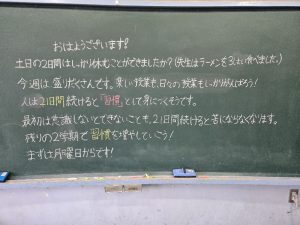 おはようございます!
土日の2日間はしっかり休むことができましたか?(先生はラーメンを3はい食べました。)
今週は、盛りだくさんです。楽しい授業も、日々の授業もしっかりがんばろう!
人は21日間続けると「習慣」として身につくそうです。
最初は意識しないとできないことも、21日間続けると苦にならなくなります。
残りの2学期で習慣を増やしていこう!
まずは月曜日からです!